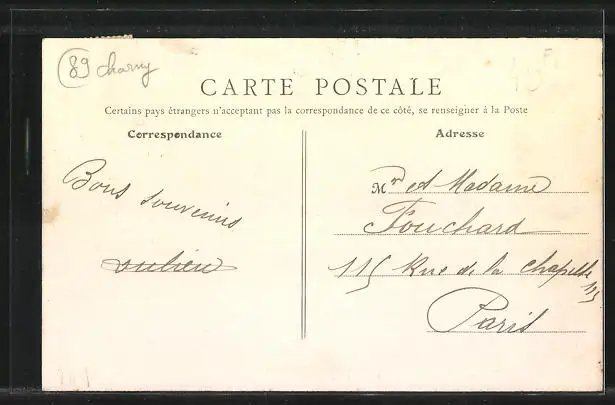 89 Charny
CARTE POSTALE
Certains pays étrangers n'acceptant pas la correspondance de ce côté, se renseigner à la Poste
Correspondance
Adresse
Bons souvenirs
Mr et Madame
Fouchard
115 Rue de la Chapelle
115
Paris